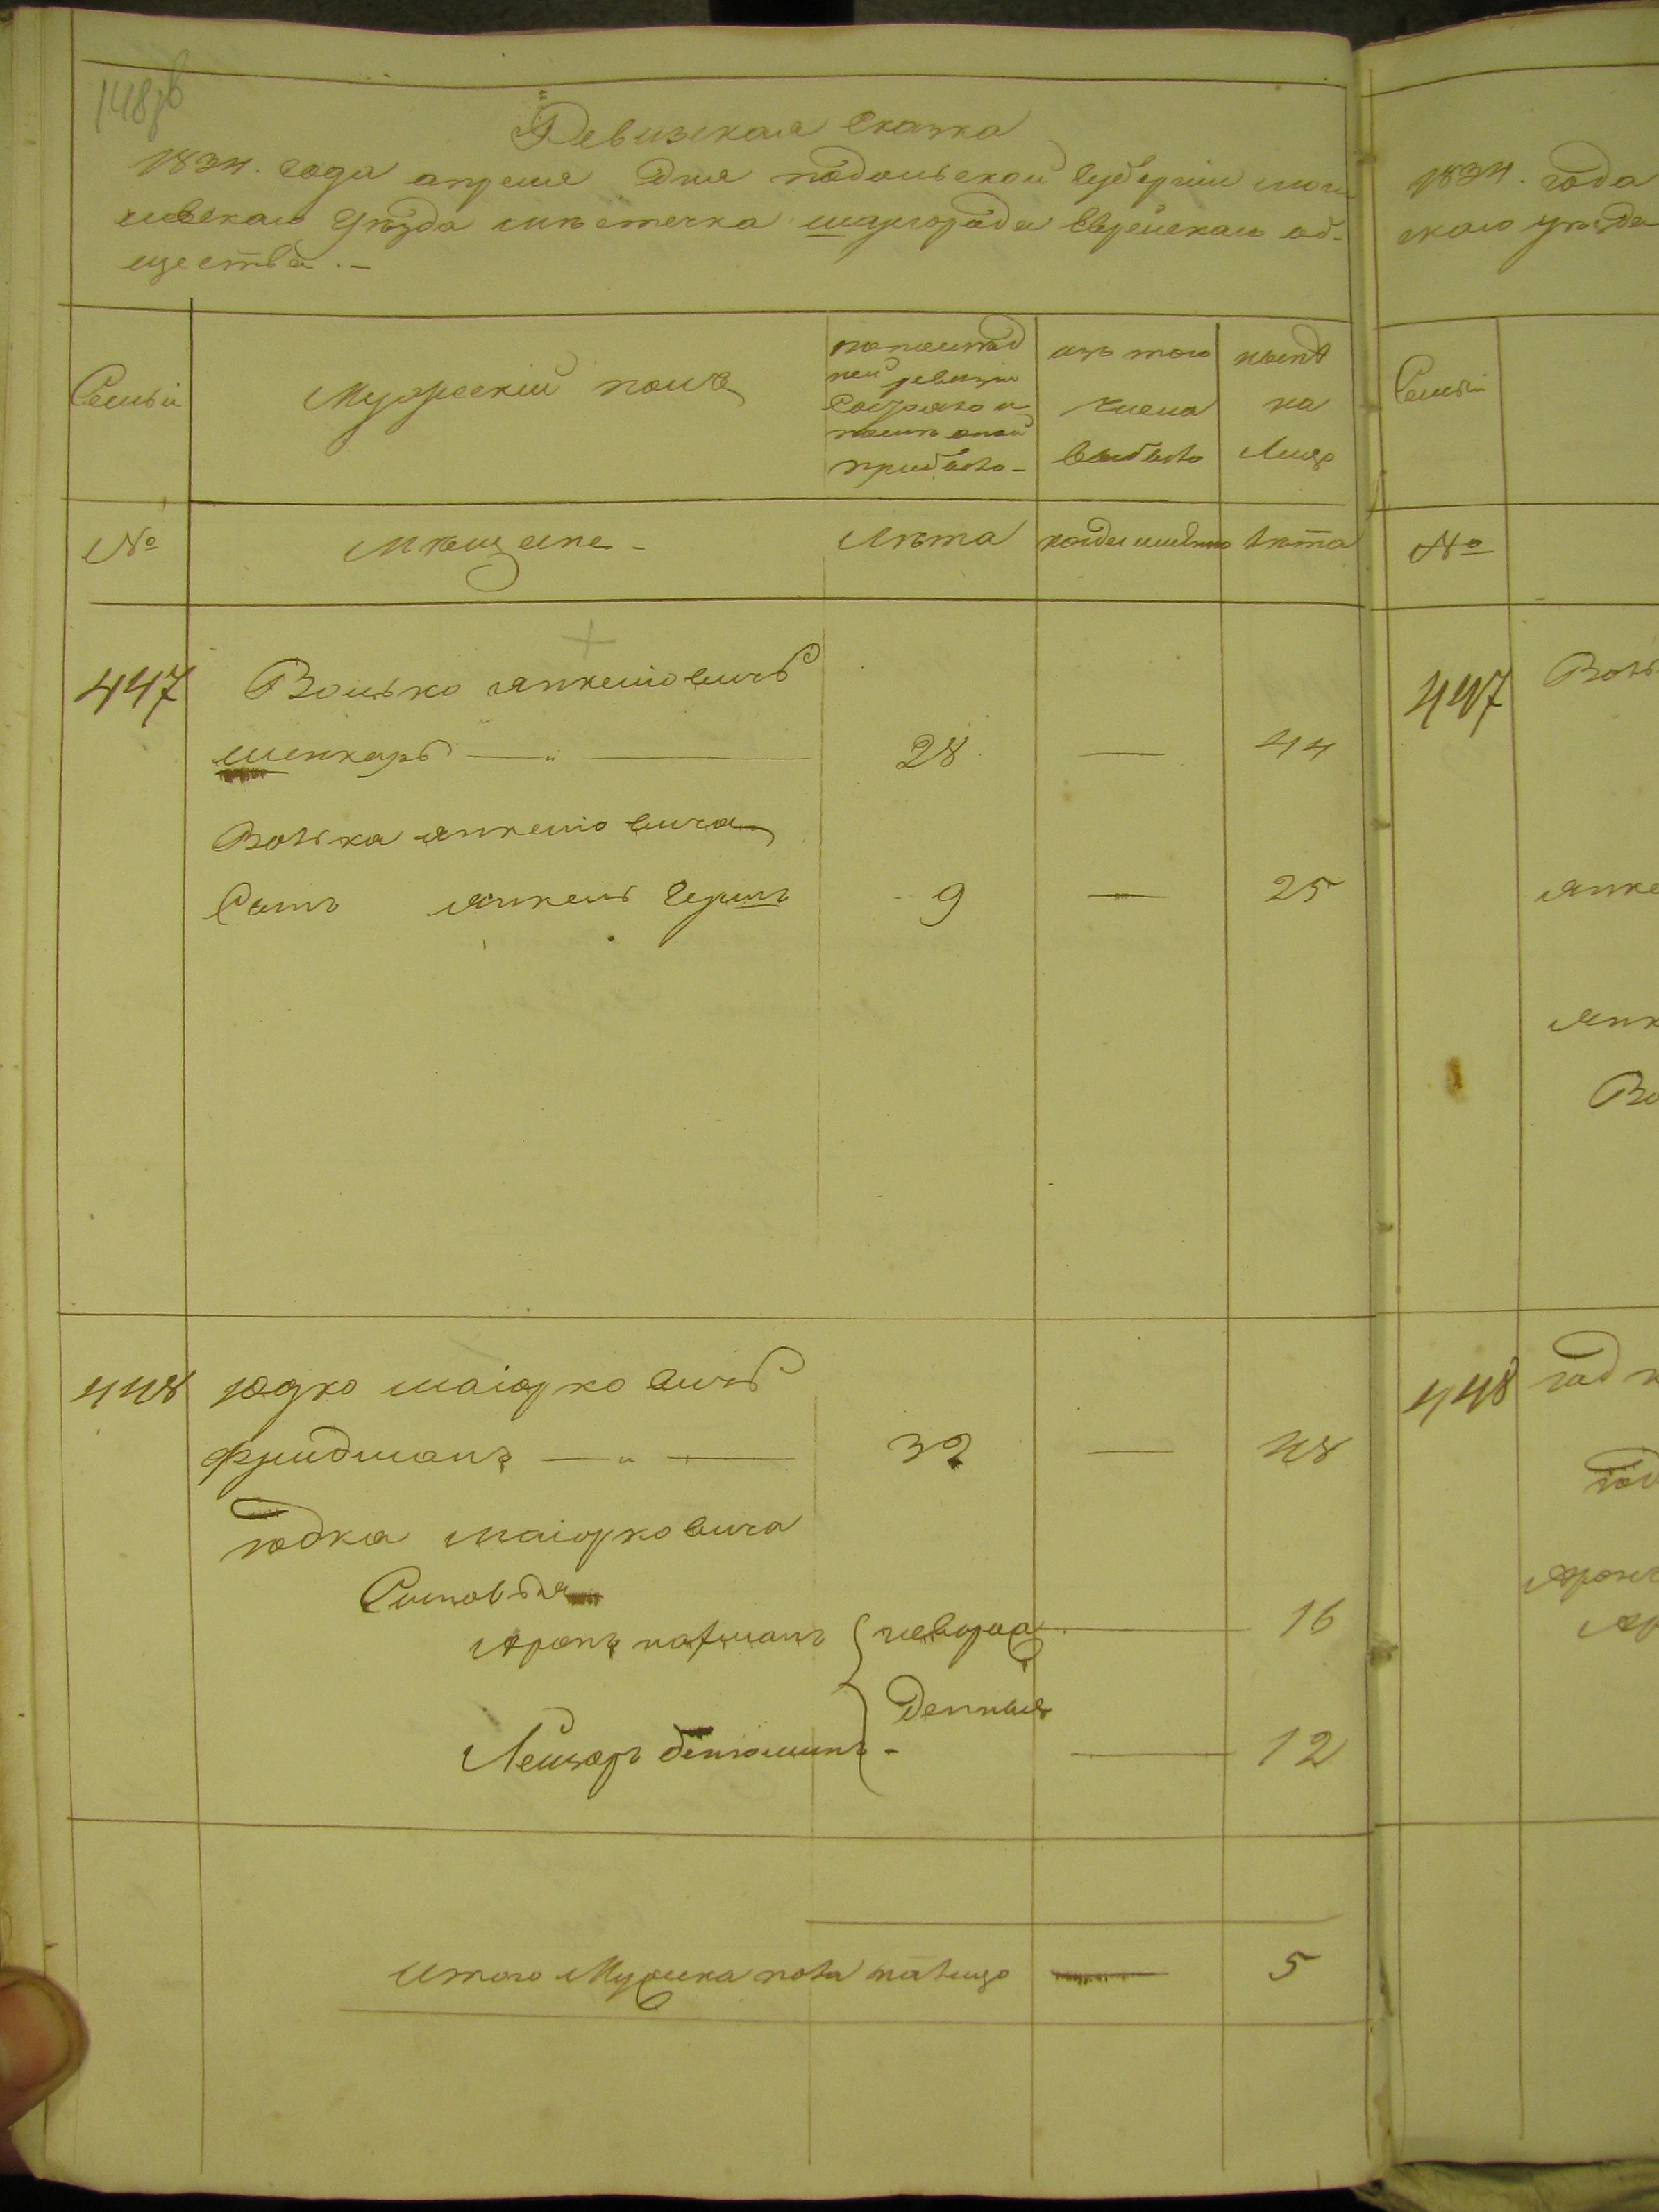 148
Ревизская Сказка
1834. года апреля Дня подольской губернии моги
левскаго уѣзда мѣстечка шаргорода Еврейскаго об-
щества.-
Семьи
Мужеский полъ
по послѣд
ней ревизіи
состояло и
послѣ оной
прибыло-
изъ того
числа
выбыло
нынѣ
на
Лицо
№
Мѣщане-
Лѣта
когда именно
лѣта
447
Волько янкелiовичъ
шенкаръ
28
44
Волька янкелiовича
Сынъ янкель Гершъ
9
25
448
юдко маiорковичъ
Фридманъ
32
48
юдка маiорковича
Сыновья
Аронъ натманъ
новорож
16
Денные
Лейзоръ бенюминъ-
12
итого Мужеска пола налицо
5
1834. года
скаго уѣзда
Семьи
№
447
448